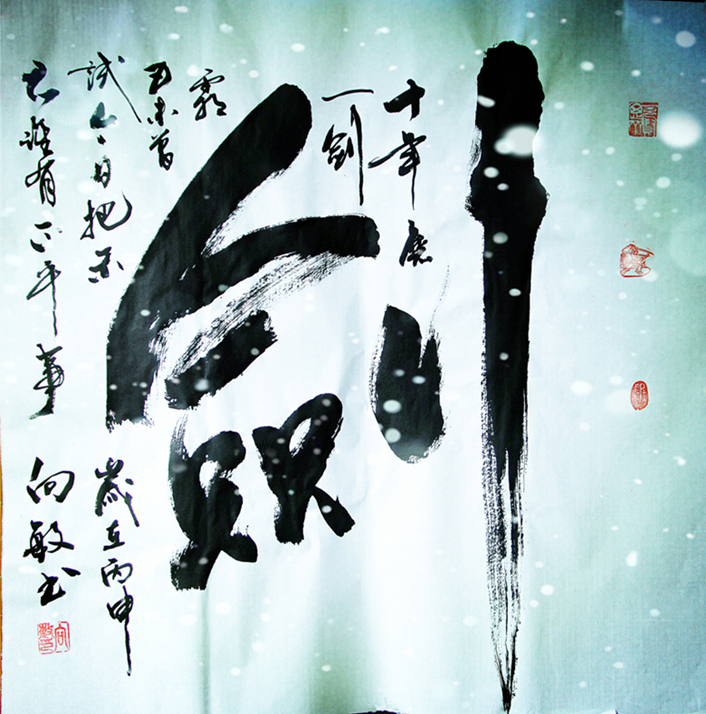 劍
十年磨
一劍
霜
刃未曾
試今日把示
君誰有不平事
歲在丙申
向敏书